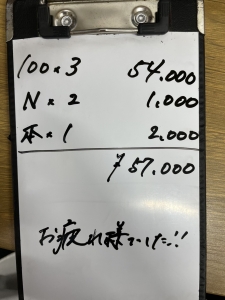 100×3 54.000
N×2 1.000
本×1 2.000
¥57.000
お疲れ様でした!!